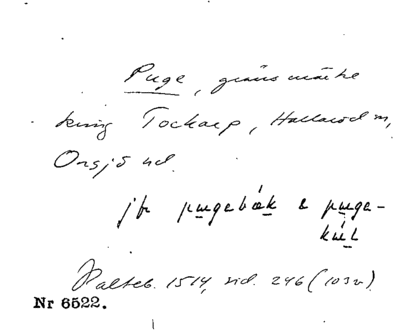 Puge, gränsmärke
kring Tockarp, Hallaröd m,
Onsjö hd.
jfr pugebäk & puge-
kul
Palteb. 1514, sid. 246 (103v)
Nr 6522.